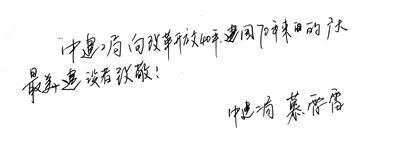 中建二局向改革开放40年、建国70年来的广大
最美建设者致敬!
中建二局 慕雪雷